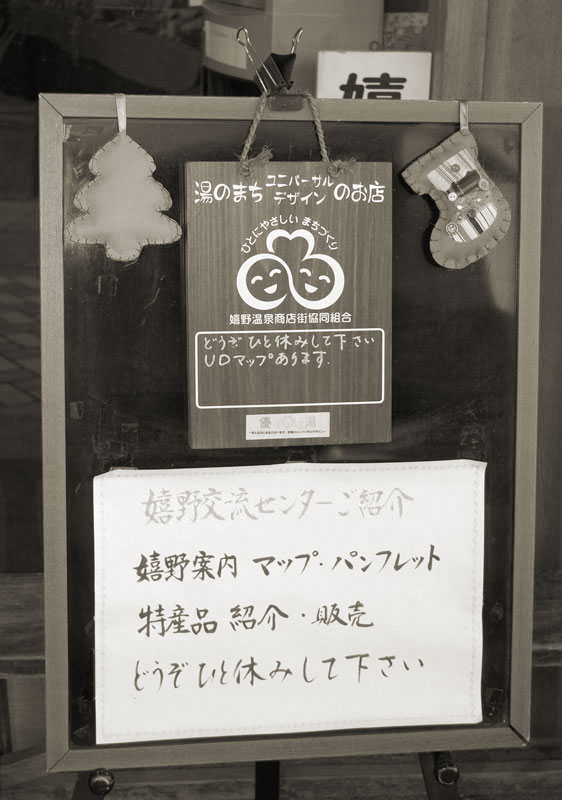 嬉
湯のまち ユニバーサルデザイン のお店
ひとにやさしい まちづくり
嬉野温泉商店街協同組合
どうぞ ひと休みして下さい
UDマップあります.
嬉野交流センターご紹介
嬉野案内 マップ・パンフレット
特産品 紹介・販売
どうぞ ひと休みして下さい